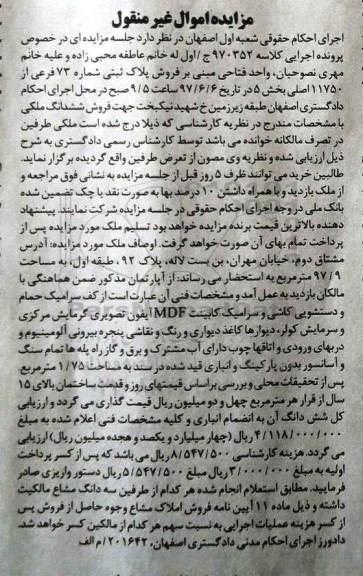 مزایده اموال غیر منقول
اجرای احکام حقوقی شعبه اول اصفهان در نظر دارد جلسه مزایده ای در خصوص
پرونده اجرایی کلاسه ۹۷۰۳۵۲ ج/اول له خانم عاطفه محبی زاده و علیه خانم
مهری نصوحیان، واحد فتاحی مبنی بر فروش پلاک ثبتی شماره ۷۳ فرعی از
۱۱۷۵۰ اصلی بخش ۵ در تاریخ ۹۷/۶/۶ ساعت ۹/۵ صبح در محل اجرای احکام
دادگستری اصفهان طبقه زیرزمین خ شهید نیکبخت جهت فروش ششدانگ ملکی
با مشخصات مندرج در نظریه کارشناسی که ذیلا درج شده است ملکی طرفین
در تصرف مالکانه خوانده می باشد توسط کارشناس رسمی دادگستری به شرح
ذیل ارزیابی شده و نظریه وی مصون از تعرض طرفین واقع گردیده برگزار نماید.
طالبین خرید می توانند ظرف ۵ روز قبل از جلسه مزایده به نشانی فوق مراجعه و
از ملک بازدید و با همراه داشتن ۱۰ درصد بها به صورت نقد یا چک تضمین شده
بانک ملی در وجه اجرای احکام حقوقی در جلسه مزایده شرکت نمایند. پیشنهاد
دهنده بالاترین قیمت برنده مزایده خواهد بود تسلیم ملک مورد مزایده پس از
پرداخت تمام بهای آن صورت خواهد گرفت. اوصاف ملک مورد مزایده: آدرس
مشتاق دوم، خیابان مهران، بن بست لاله، پلاک ۹۲، طبقه اول، به مساحت
۹۷/۹ مترمربع به استحضار می رساند: از آپارتمان مذکور ضمن هماهنگی با
مالکان بازدید به عمل آمد و مشخصات فنی آن عبارت است از کف سرامیک حمام
و دستشویی کاشی و سرامیک کابینت MDF آیفون تصویری گرمایش مرکزی
و سرمایش کولر، دیوارها کاغذ دیواری و رنگ و نقاشی پنجره بیرونی آلومینیوم و
دربهای ورودی و اتاقها چوب دارای آب مشترک و برق و گاز راه پله ها تمام سنگ
و آسانسور بدون پارکینگ و انباری قید شده در سند به مساحت ۱/۷۵ مترمربع
پس از تحقیقات محلی و بررسی براساس قیمتهای روز و قدمت ساختمان بالای ۱۵
سال از قرار هر مترمربع چهل و دو میلیون ریال قیمت گذاری می گردد و ارزیابی
کل شش دانگ آن به انضمام انباری و کلیه مشخصات فنی اعلام شده به مبلغ
۴/۱۱۸/۰۰۰/۰۰۰ ریال (چهار میلیارد و یکصد و هجده میلیون ریال) ارزیابی
می گردد. هزینه کارشناسی ۸/۵۴۷/۵۰۰ ریال می باشد که پس از کسر پرداخت
اولیه به مبلغ ۳/۰۰۰/۰۰۰ ریال مبلغ ۵/۵۴۷/۵۰۰ ریال دستور واریزی صادر
فرمایید. مطابق استعلام انجام شده هر کدام از طرفین سه دانگ مشاع مالکیت
داشته و ذیل ماده ۱۱ آیین نامه فروش املاک مشاع وجوه حاصل از فروش پس
از کسر هزینه عملیات اجرایی به نسبت سهم هر کدام از مالکین کسر خواهد شد.
دادورز اجرای احکام مدنی دادگستری اصفهان. ۲۰۱۶۴۲/م الف